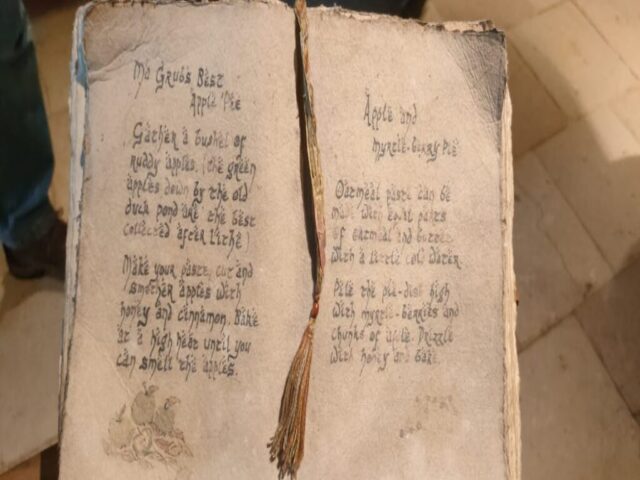 Ma Grub's Best
Apple Pie
Gather a bushel of
ruddy apples. (the green
apples down by the old
duck pond are the best
collected after Lithe)
Make your paste, cut and
smother apples with
honey and cinnamon. Bake
at a high heat until you
can smell the apples.
Apple and
myrtle-berry Pie
Oatmeal paste can be
made with equal parts
of oatmeal and butter
with a little cold water.
Pile the pie-dish high
with myrtle-berries and
chunks of apple. Drizzle
with honey and bake.